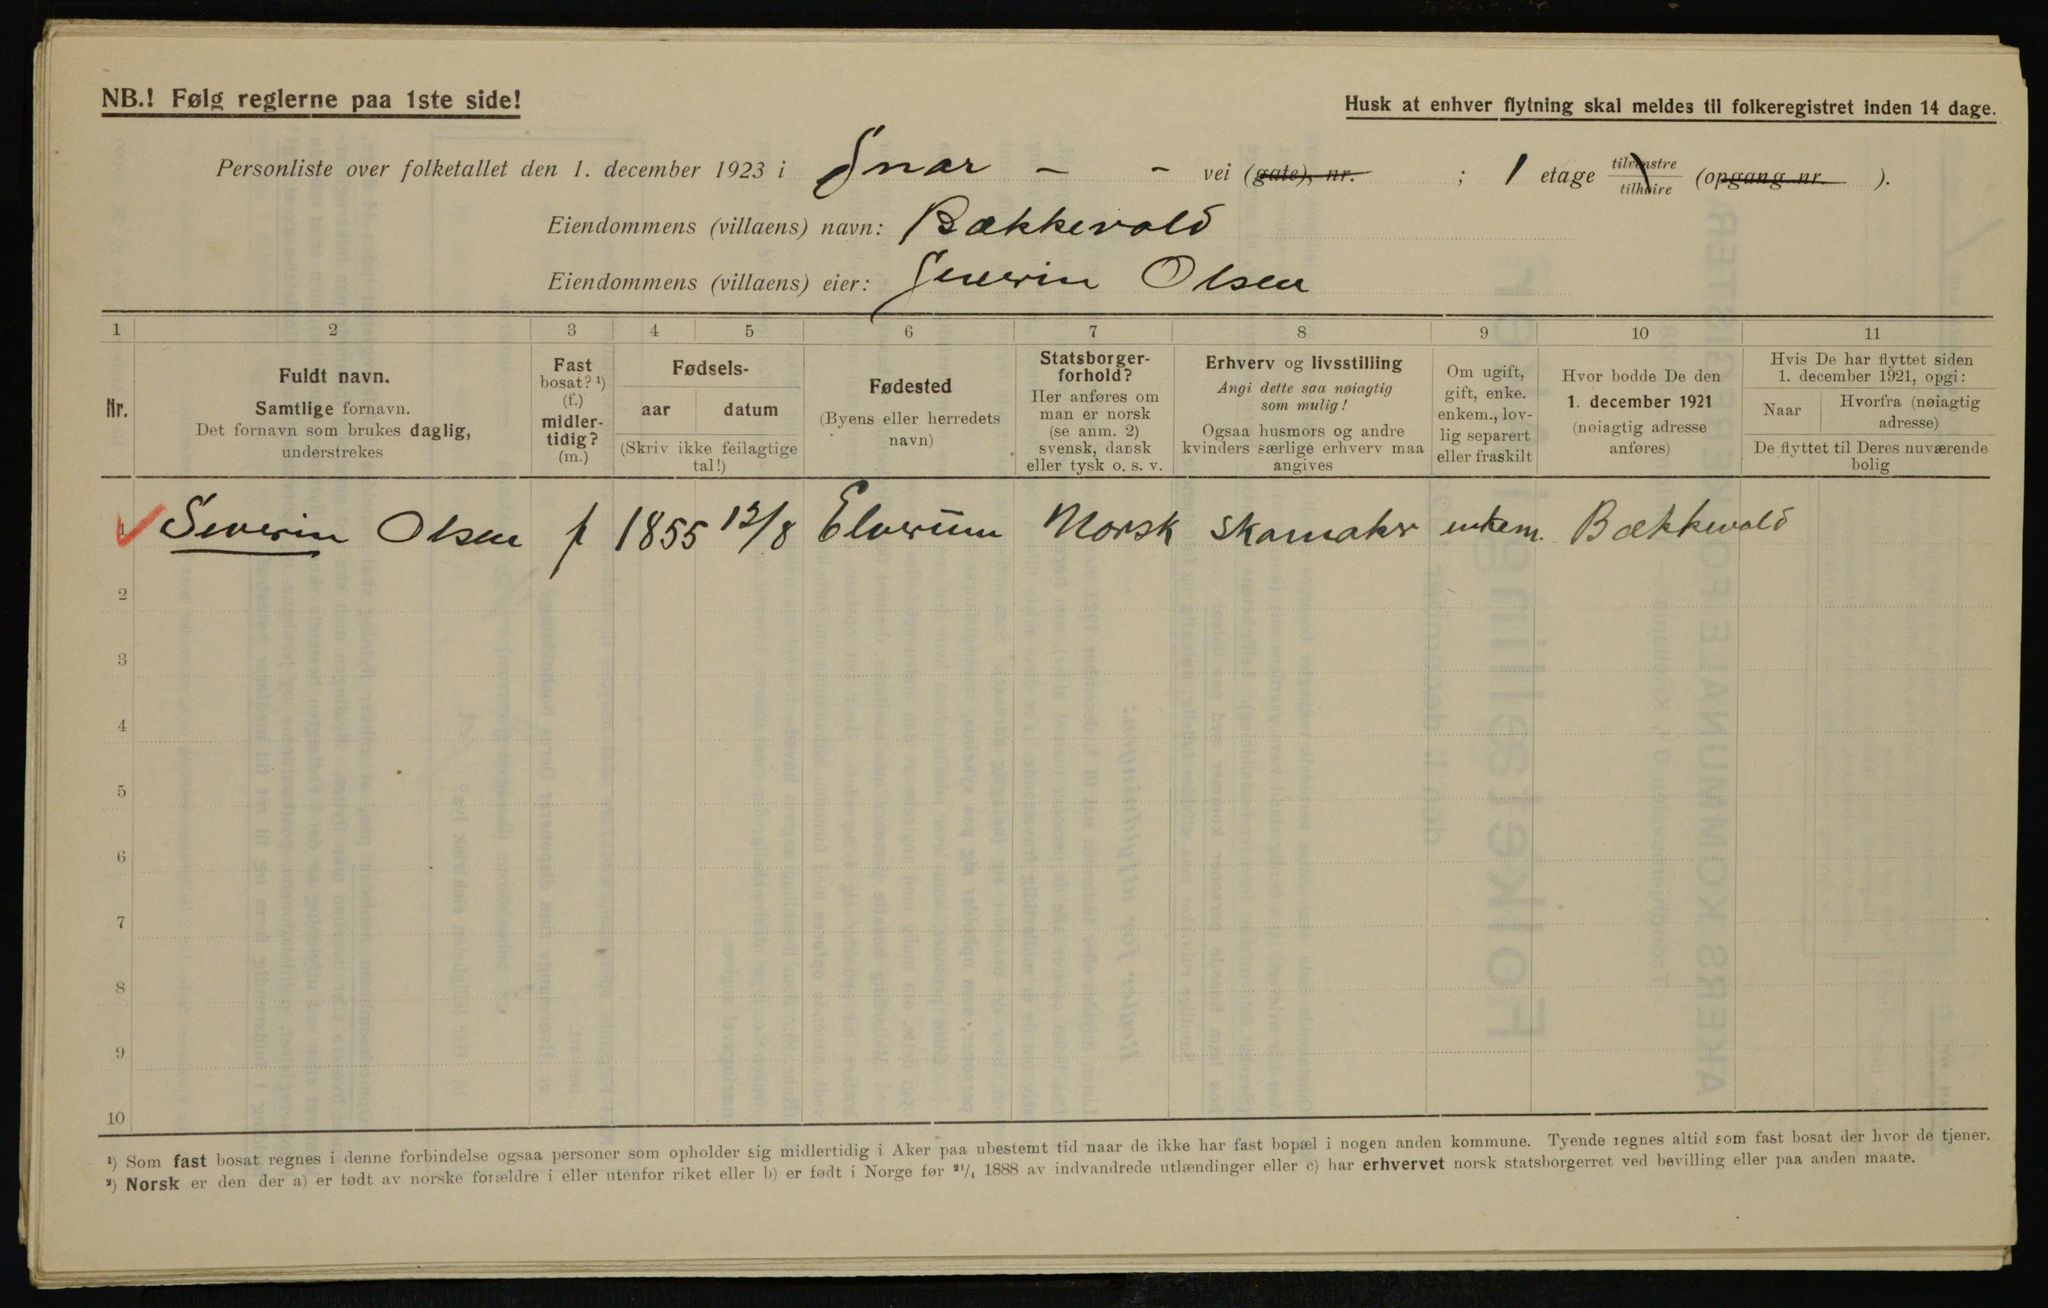 NB.! Følg reglerne paa 1ste side!
Husk at enhver flytning skal meldes til folkeregistret inden 14 dage.
Personliste over folketallet den 1. december 1923 i Snar - - vei (gate), nr. ; 1 etage tilvenstre tilhøire (opgang nr. ).
Eiendommens (villaens) navn: Bækkevold
Eiendommens (villaens) eier: Severin Olsen
1 2 3 4 5 6 7 8 9 10 11
Nr.
Fuldt navn.
Samtlige fornavn.
Det fornavn som brukes daglig,
understrekes
Fast
bosat? ¹)
(f.)
midler-
tidig?
(m.)
Fødsels-
aar datum
(Skriv ikke feilagtige
tal!)
Fødested
(Byens eller herredets
navn)
Statsborger-
forhold?
Her anføres om
man er norsk
(se anm. 2)
svensk, dansk
eller tysk o. s. v.
Erhverv og livsstilling
Angi dette saa nøiagtig
som mulig!
Ogsaa husmors og andre
kvinders særlige erhverv maa
angives
Om ugift,
gift, enke.
enkem., lov-
lig separert
eller fraskilt
Hvor bodde De den
1. december 1921
(nøiagtig adresse
anføres)
Hvis De har flyttet siden
1. december 1921, opgi:
Naar
Hvorfra (nøiagtig
adresse)
De flyttet til Deres nuværende
bolig
1 Severin Olsen f 1855 12/8 Elverum Norsk Skomaker enkem. Bækkevold
2
3
4
5
6
7
8
9
10
¹) Som fast bosat regnes i denne forbindelse ogsaa personer som opholder sig midlertidig i Aker paa ubestemt tid naar de ikke har fast bopæl i nogen anden kommune. Tyende regnes altid som fast bosat der hvor de tjener.
²) Norsk er den der a) er født av norske forældre i eller utenfor riket eller b) er født i Norge før ²¹/₄ 1888 av indvandrede utlændinger eller c) har erhvervet norsk statsborgerret ved bevilling eller paa anden maate.